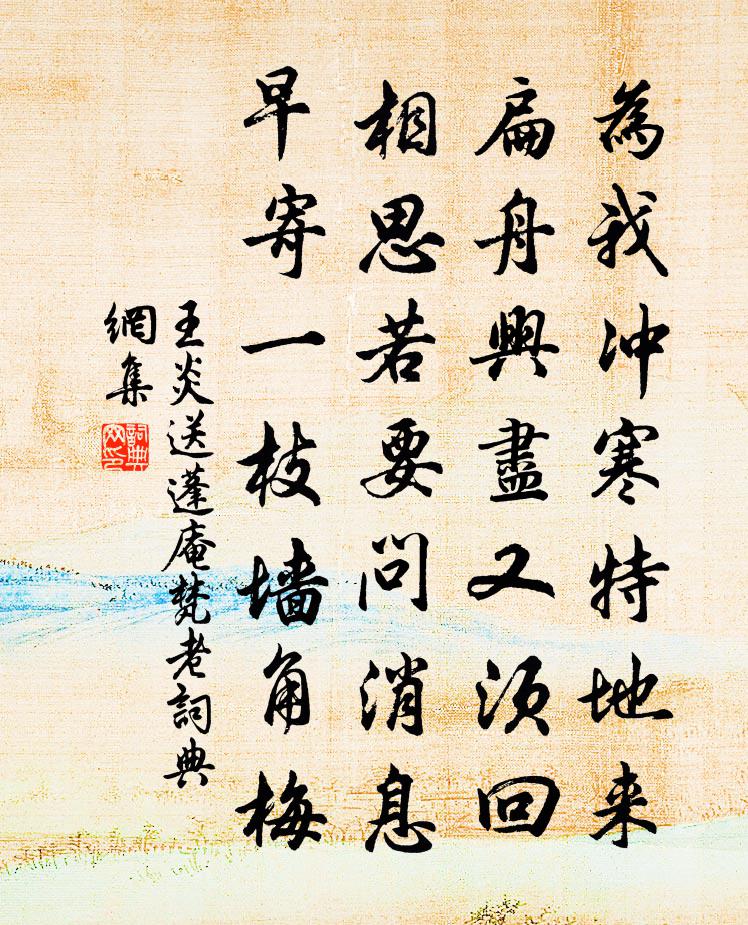 為我冲寒特地来
扁舟興盡又须回
相思若要問消息
早寄一枝墙角梅
王炎送蓬庵梵老詞典
網集
詞典網印